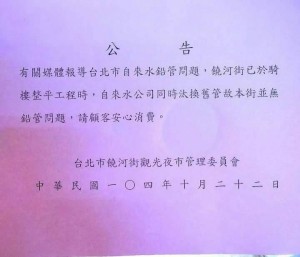 公告
有關媒體報導台北市自來水鉛管問題，饒河街已於騎
樓整平工程時，自來水公司同時汰換舊管故本街並無
鉛管問題，請顧客安心消費。
台北市饒河街觀光夜市管理委員會
中華民國一〇四年十月二十二日